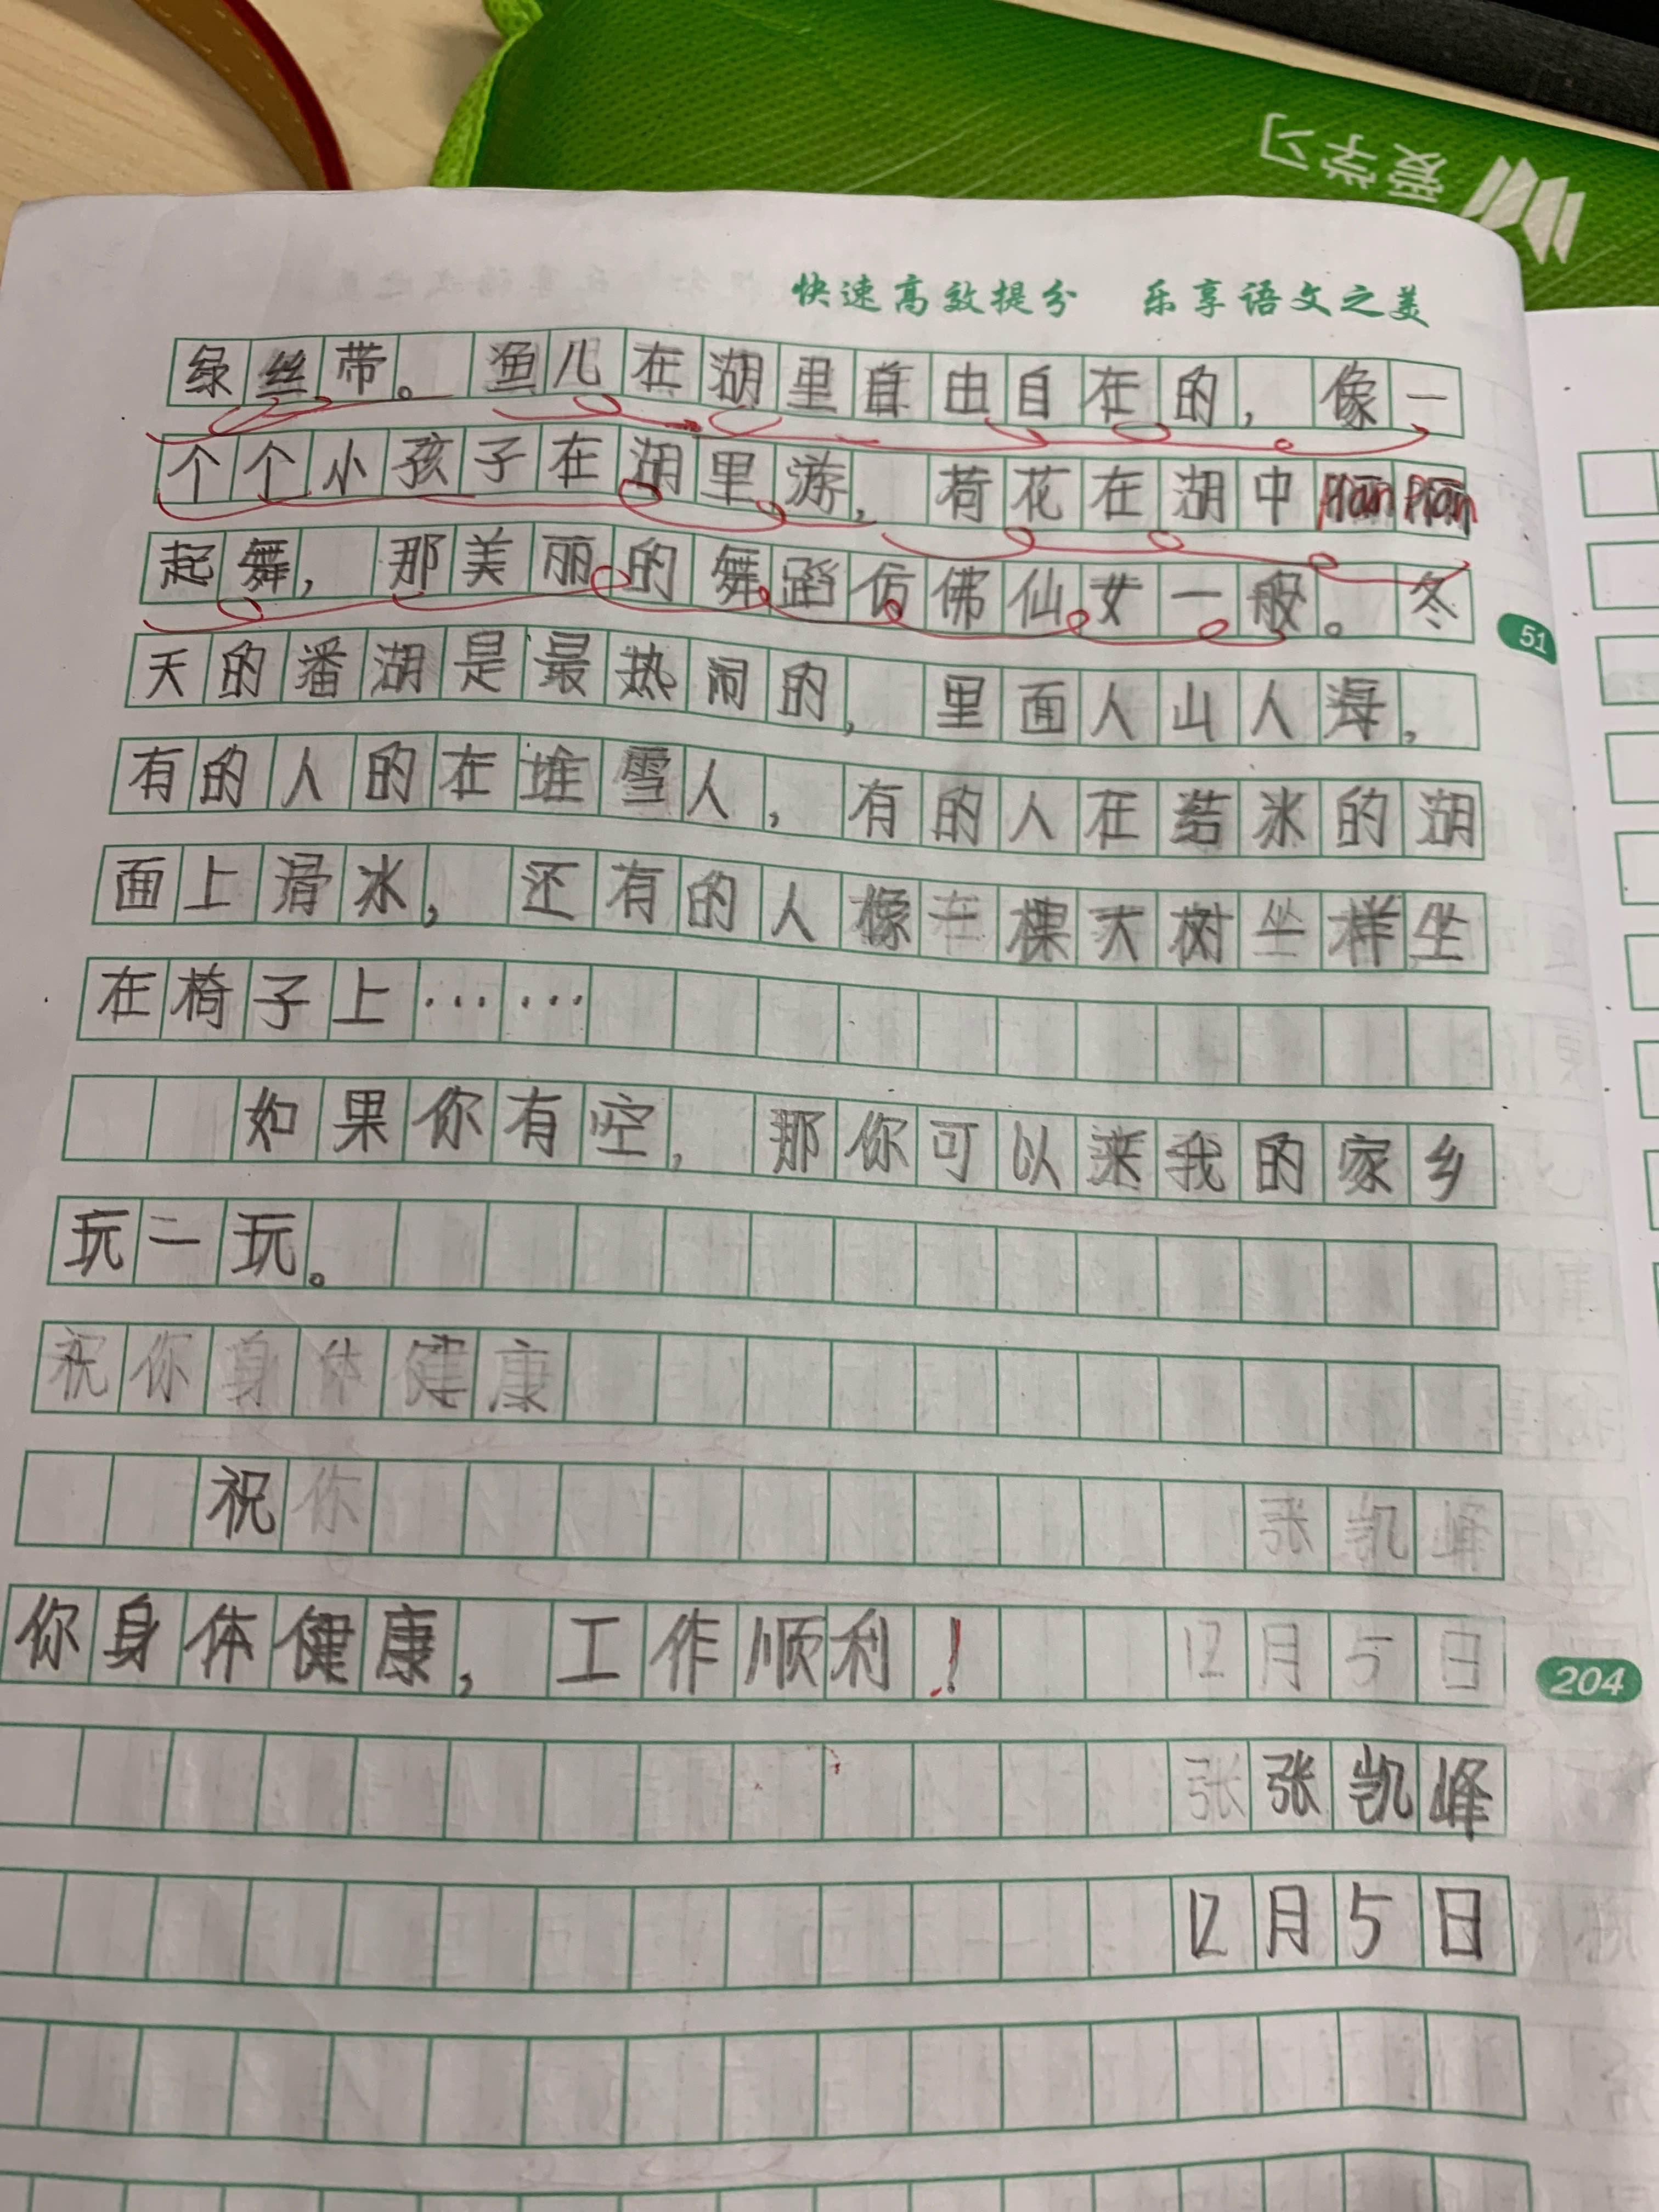 爱学习
快速高效提分 乐享语文之美
绿丝带。鱼儿在湖里自由自在的，像一
个个小孩子在湖里游，荷花在湖中
起舞，那美丽的舞蹈仿佛仙女一般。冬
天的番湖是最热闹的，里面人山人海，
有的人的在堆雪人，有的人在结冰的湖
面上滑冰，还有的人像在棵大树坐样坐
在椅子上……
如果你有空，那你可以来我的家乡
玩一玩。
祝你身体健康
祝你 张凯峰
你身体健康，工作顺利！ 12月5日
张张凯峰
12月5日
51
204